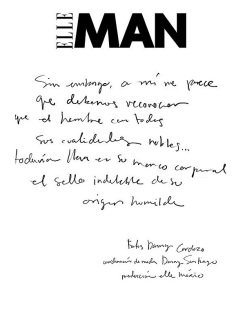 ELLE MAN
Sin embargo, a mí me parece
que debemos reconocer
que el hombre con todas
sus cualidades nobles...
todavía lleva en su marco corporal
el sello indeleble de su
origen humilde
Fotos Danny Cardozo
coordinación de moda Danny Santiago
producción elle méxico